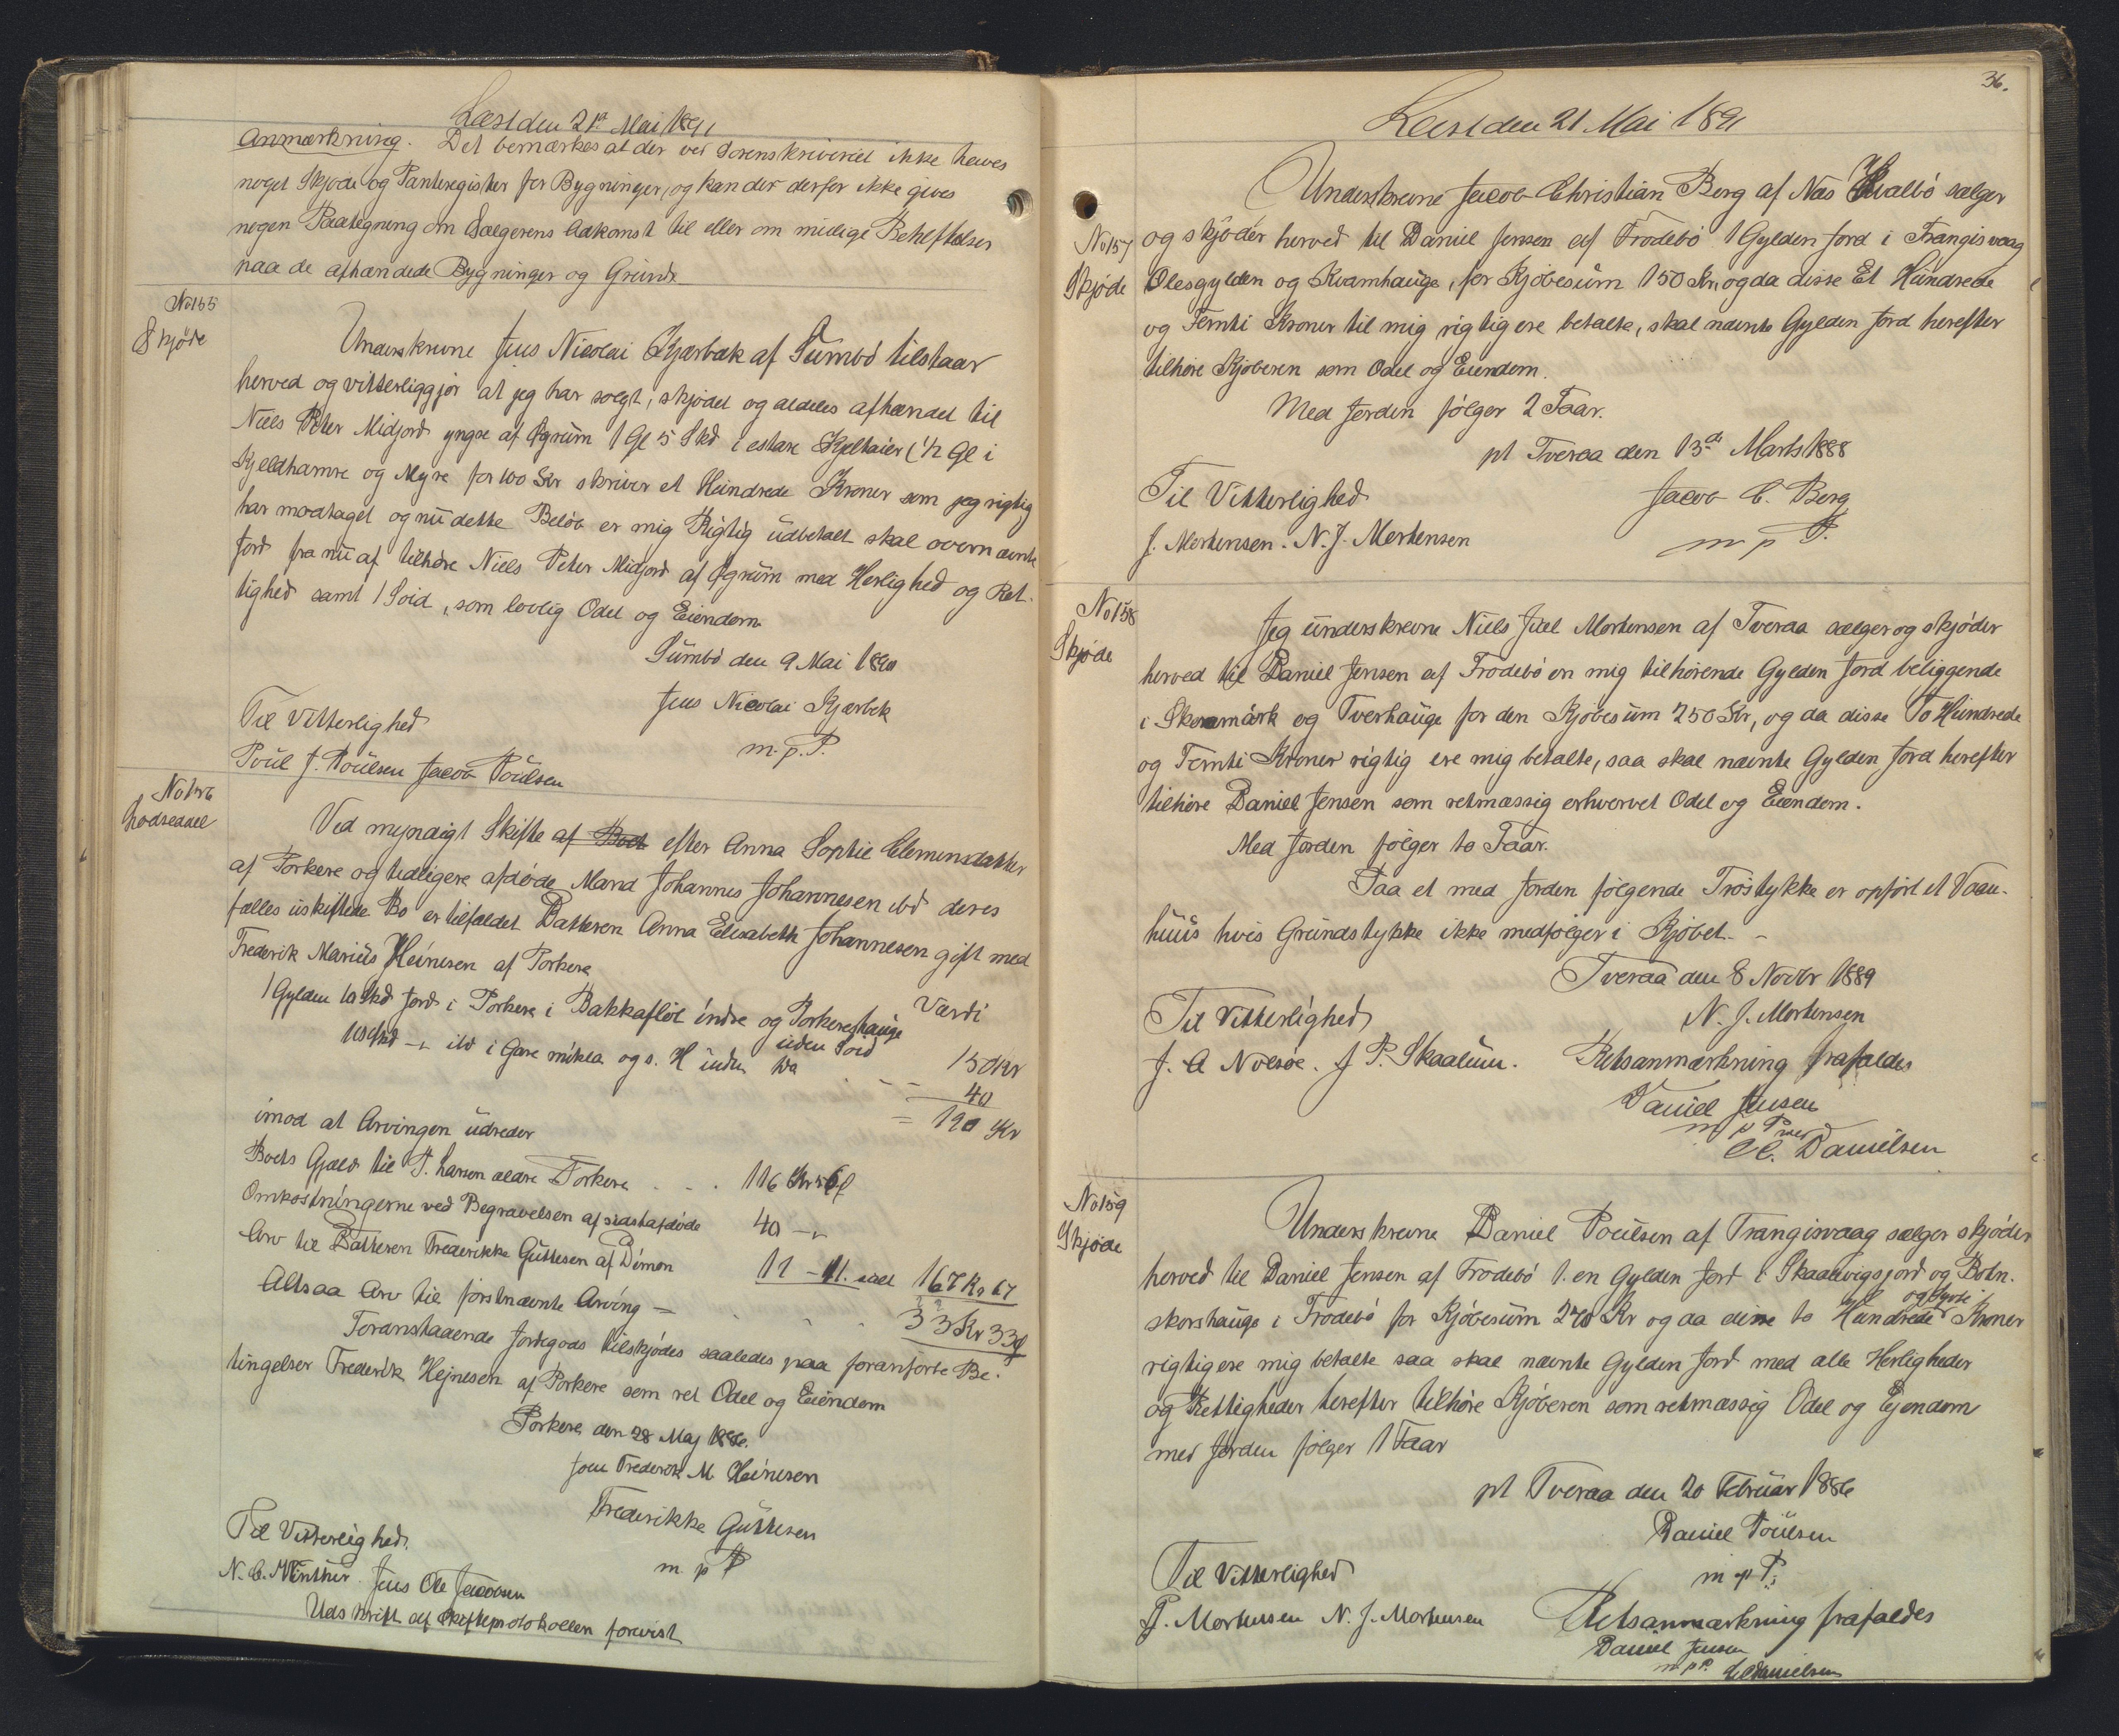 Læst den 21de Mai 1891
Anmærkning. Det bemærkes at der ved Sorenskriveriet ikke haves
noget Skjøde og Panteregister for Bygninger, og kan der derfor ikke gives
nogen Paategning om Sælgerens Adkomst til eller om mulige Behæftelser
paa de afhændede Bygninger og Grunde
No 155
Skjøde
Underskrevne Jens Nicolai Kjærbæk af Sumbø tilstaar
herved og vitterliggjør at jeg har solgt, skjødet og aldeles afhændet til
Niels Peter Midjord yngre af Øgrum 1 Gl 5 Skd i estare Kjeltaier (½ Gl i
Kjeldhamre og Myre for 100 Kr skriver et Hundrede Kroner som jeg rigtig
har modtaget og nu dette Beløb er mig Rigtig udbetalt skal ovennævnte
Jord fra nu af tilhøre Niels Peter Midjord af Øgrum med Herlighed og Ret-
tighed samt 1 Soid, som lovlig Odel og Eiendom
Sumbø den 9 Mai 1890
Jens Nicolai Kjærbek
m. p. P.
Til Vitterlighed
Poul J. Poulsen Jacob Poulsen
No 156
Lodseddel
Ved myndigt Skifte af Boet efter Anna Sophie Clemensdatter
af Porkere og tidligere afdøde Mand Johannes Johannesen ibd deres
fælles uskiftede Bo er tilfaldet Datteren Anna Elisabeth Johannesen gift med
Frederik Marius Heinesen af Porkere
Værdi
1 Gylden 10 Skd Jord i Porkere i Bakkafløt indre og Porkereshauge
uden Soid 150 Kr
10 Skd - " - ibd i Gare mikla og s. H uden do - - 40
= 190 Kr
imod at Arvingen udreder
Boets Gjæld til P. Larsen ældre Porkere . . . 116 Kr 56 Ø
Omkostningerne ved Begravelsen af sidstafdøde 40 - "
Arv til Datteren Frederikke Guttesen af Dimon 11 - 11. ialt 167 Kr 67
Altsaa Arv til førstnævnte Arving - . . . 33 Kr 33 Ø
Foranstaaende Jordegods tilskjødes saaledes paa foranførte Be-
tingelser Frederik Hejnesen af Porkere som ret Odel og Eiendom
Porkere den 28 Maj 1886.
Joen Frederik M. Heinesen
Frederikke Guttesen
m p P
Til Vitterlighed.
N. C. Winther. Jens Ole Jacobsen
Udskrift af Skifteprotokollen forevist
36.
Læst den 21 Mai 1891
No 157
Skjøde
Underskrevne Jacob Christian Berg af Næs Hvalbø sælger
og skjøder herved til Daniel Jensen af Frodebø 1 Gylden Jord i Trangisvaag
Olesgylden og Kvamhauge, for Kjøbesum 150 Kr, og da disse Et Hundrede
og Femti Kroner til mig rigtig ere betalte, skal nævnte Gylden Jord herefter
tilhøre Kjøberen som Odel og Eiendom.
Med Jorden følger 2 Faar.
pt Tveraa den 13de Marts 1888
Jacob C. Berg
m p P.
Til Vitterlighed
J. Mortensen. N. J. Mortensen
No 158
Skjøde
Jeg underskrevne Niels Juel Mortensen af Tveraa sælger og skjøder
herved til Daniel Jensen af Frodebø en mig tilhørende Gylden Jord beliggende
i Skoramark og Tverhauge for den Kjøbesum 250 Kr, og da disse To Hundrede
og Femti Kroner rigtig ere mig betalte, saa skal nævnte Gylden Jord herefter
tilhøre Daniel Jensen som retmæssig erhvervet Odel og Eiendom.
Med Jorden følger to Faar.
Paa et med Jorden følgende Trøstykke er opført et Vaan-
huus hvis Grundstykke ikke medfølger i Kjøbet. -
Tveraa den 8 Novbr 1889
N. J. Mortensen
Til Vitterlighed
J. A Nolsøe. J P. Skaalum.
Retsanmærkning frafaldes
Daniel Jensen
m p P
ved
C. Danielsen
No 159
Skjøde
Underskrevne Daniel Poulsen af Trangisvaag sælger skjøder
herved til Daniel Jensen af Frodebø 1. en Gylden Jord i Skaalvigsjord og Botn-
skorshauge i Frodebø for Kjøbesum 240 Kr og da disse to Hundrede og fyrti Kroner
rigtig ere mig betalte saa skal nævnte Gylden Jord med alle Herligheder
og Rettigheder herefter tilhøre Kjøberen som retmæssig Odel og Ejendom
med Jorden følger 1 Faar
pt Tveraa den 20 Februar 1886
Daniel Poulsen
m p P.
Til Vitterlighed
J. Mortensen N. J. Mortensen
Retsanmærkning frafaldes
Daniel Jensen
m p P. C. Danielsen